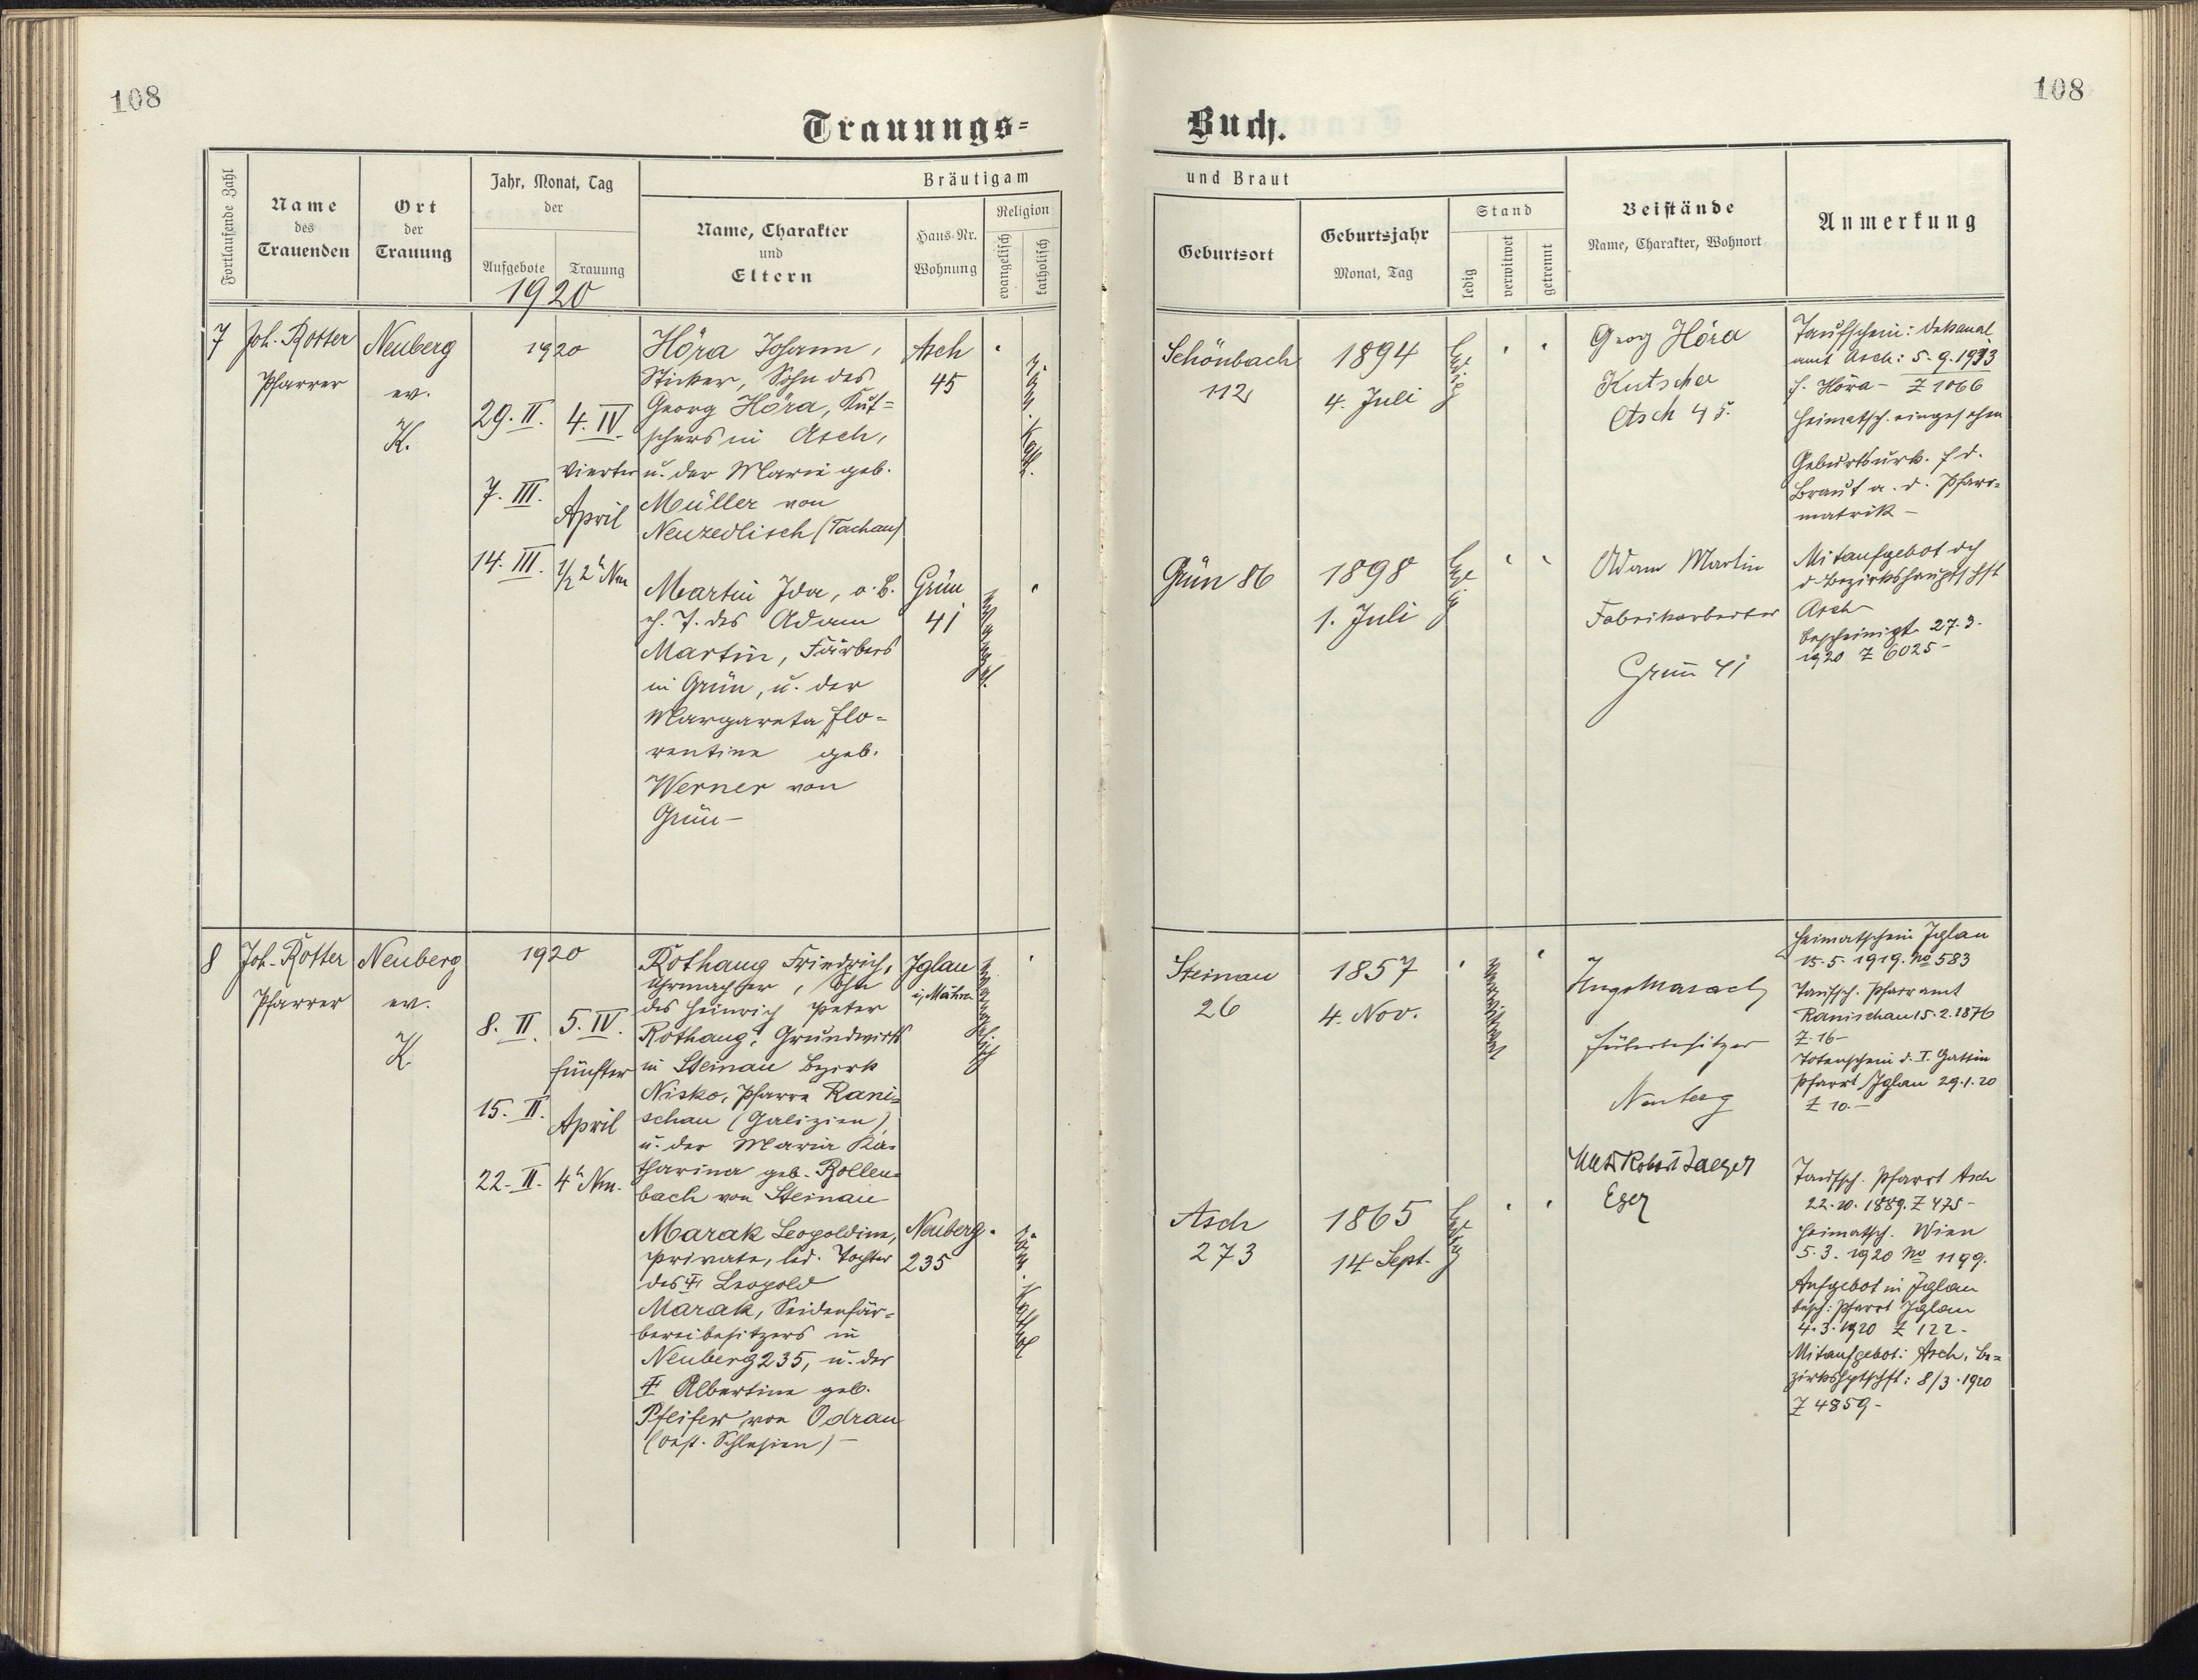 108
108
Trauungs=
Buch.
Fortlaufende Zahl
Name
des
Trauenden
Ort
der
Trauung
Jahr, Monat, Tag
der
Aufgebote
Trauung
1920
Bräutigam
Name, Charakter
und
Eltern
Haus-Nr.
Wohnung
Religion
evangelisch
katholisch
und Braut
Geburtsort
Geburtsjahr
Monat, Tag
Stand
ledig
verwitwet
getrennt
Beistände
Name, Charakter, Wohnort
Anmerkung
7
Joh. Rotter
Pfarrer
Neuberg
ev.
K.
1920
29. II.
7. III.
14. III.
4. IV.
Vierter
April
1/2 2h Nm
Höra Johann,
Sticker, Sohn des
Georg Höra, Kut=
schers in Asch,
u. der Marie geb.
Müller von
Neuzedlisch (Tachau)
Asch
45
röm. kath.
Schönbach
112
1894
4. Juli
ledig
Georg Höra
Kutscher
Asch 45.
Taufschein: Dekanal
amt Asch: 5.9.1913
f. Höra - Z 1066
Heimatsch. eingesehen
Geburtsurk. f d.
Braut a. d. Pfarr=
matrik -
Martin Ida, o. B.
eh. T. des Adam
Martin, Färbers
in Grün, u. der
Margareta Flo=
rentine geb.
Werner von
Grün -
Grün
41
evangel.
Grün 86
1898
1. Juli
ledig
Adam Martin
Fabrikarbeiter
Grün 41
Mitaufgebot dch
d. Bezirkshauptschft
Asch
bescheinigt 27.3.
1920 Z 6025 -
8
Joh. Rotter
Pfarrer
Neuberg
ev.
K.
1920
8. II.
15. II.
22. II.
5. IV.
fünfter
April
4h Nm.
Rothaug Friedrich,
Uhrmacher, Sohn
des Heinrich Peter
Rothaug, Grundwirts
in Steinau Bezirk
Nisko, Pfarre Rani=
schau (Galizien),
u. der Maria Ka=
tharina geb. Rollen=
bach von Steinau
Iglau
i. Mähren
evangelisch
Steinau
26
1857
4. Nov.
verwitwet
Hugo Marack
Färbereibesitzer
Neuberg
Heimatschein Iglau
15.5.1919. No 583
Taufsch. Pfarramt
Ranischau 15.2.1876
Z. 16 -
Totenschein d. I. Gattin
Pfarrt Iglau 29.1.20
Z 10. -
Marak Leopoldine,
Private, led. Tochter
des † Leopold
Marak, Seidenfär=
bereibesitzers in
Neuberg 235, u. der
† Albertine geb.
Pfeifer von Odrau
(öst. Schlesien) -
Neuberg
235
röm. kathol
Asch
273
1865
14 Sept.
ledig
Robert Jaeger
Eger
Taufsch. Pfarrt Asch
22.10.1889. Z 475 -
Heimatsch. Wien
5.3.1920 No 1199.
Aufgebot in Iglau
besch: Pfarrt Iglau
4.3.1920 Z 122 -
Mitaufgebot: Asch, Be=
zirkshptschft: 8/3.1920
Z 4859 -